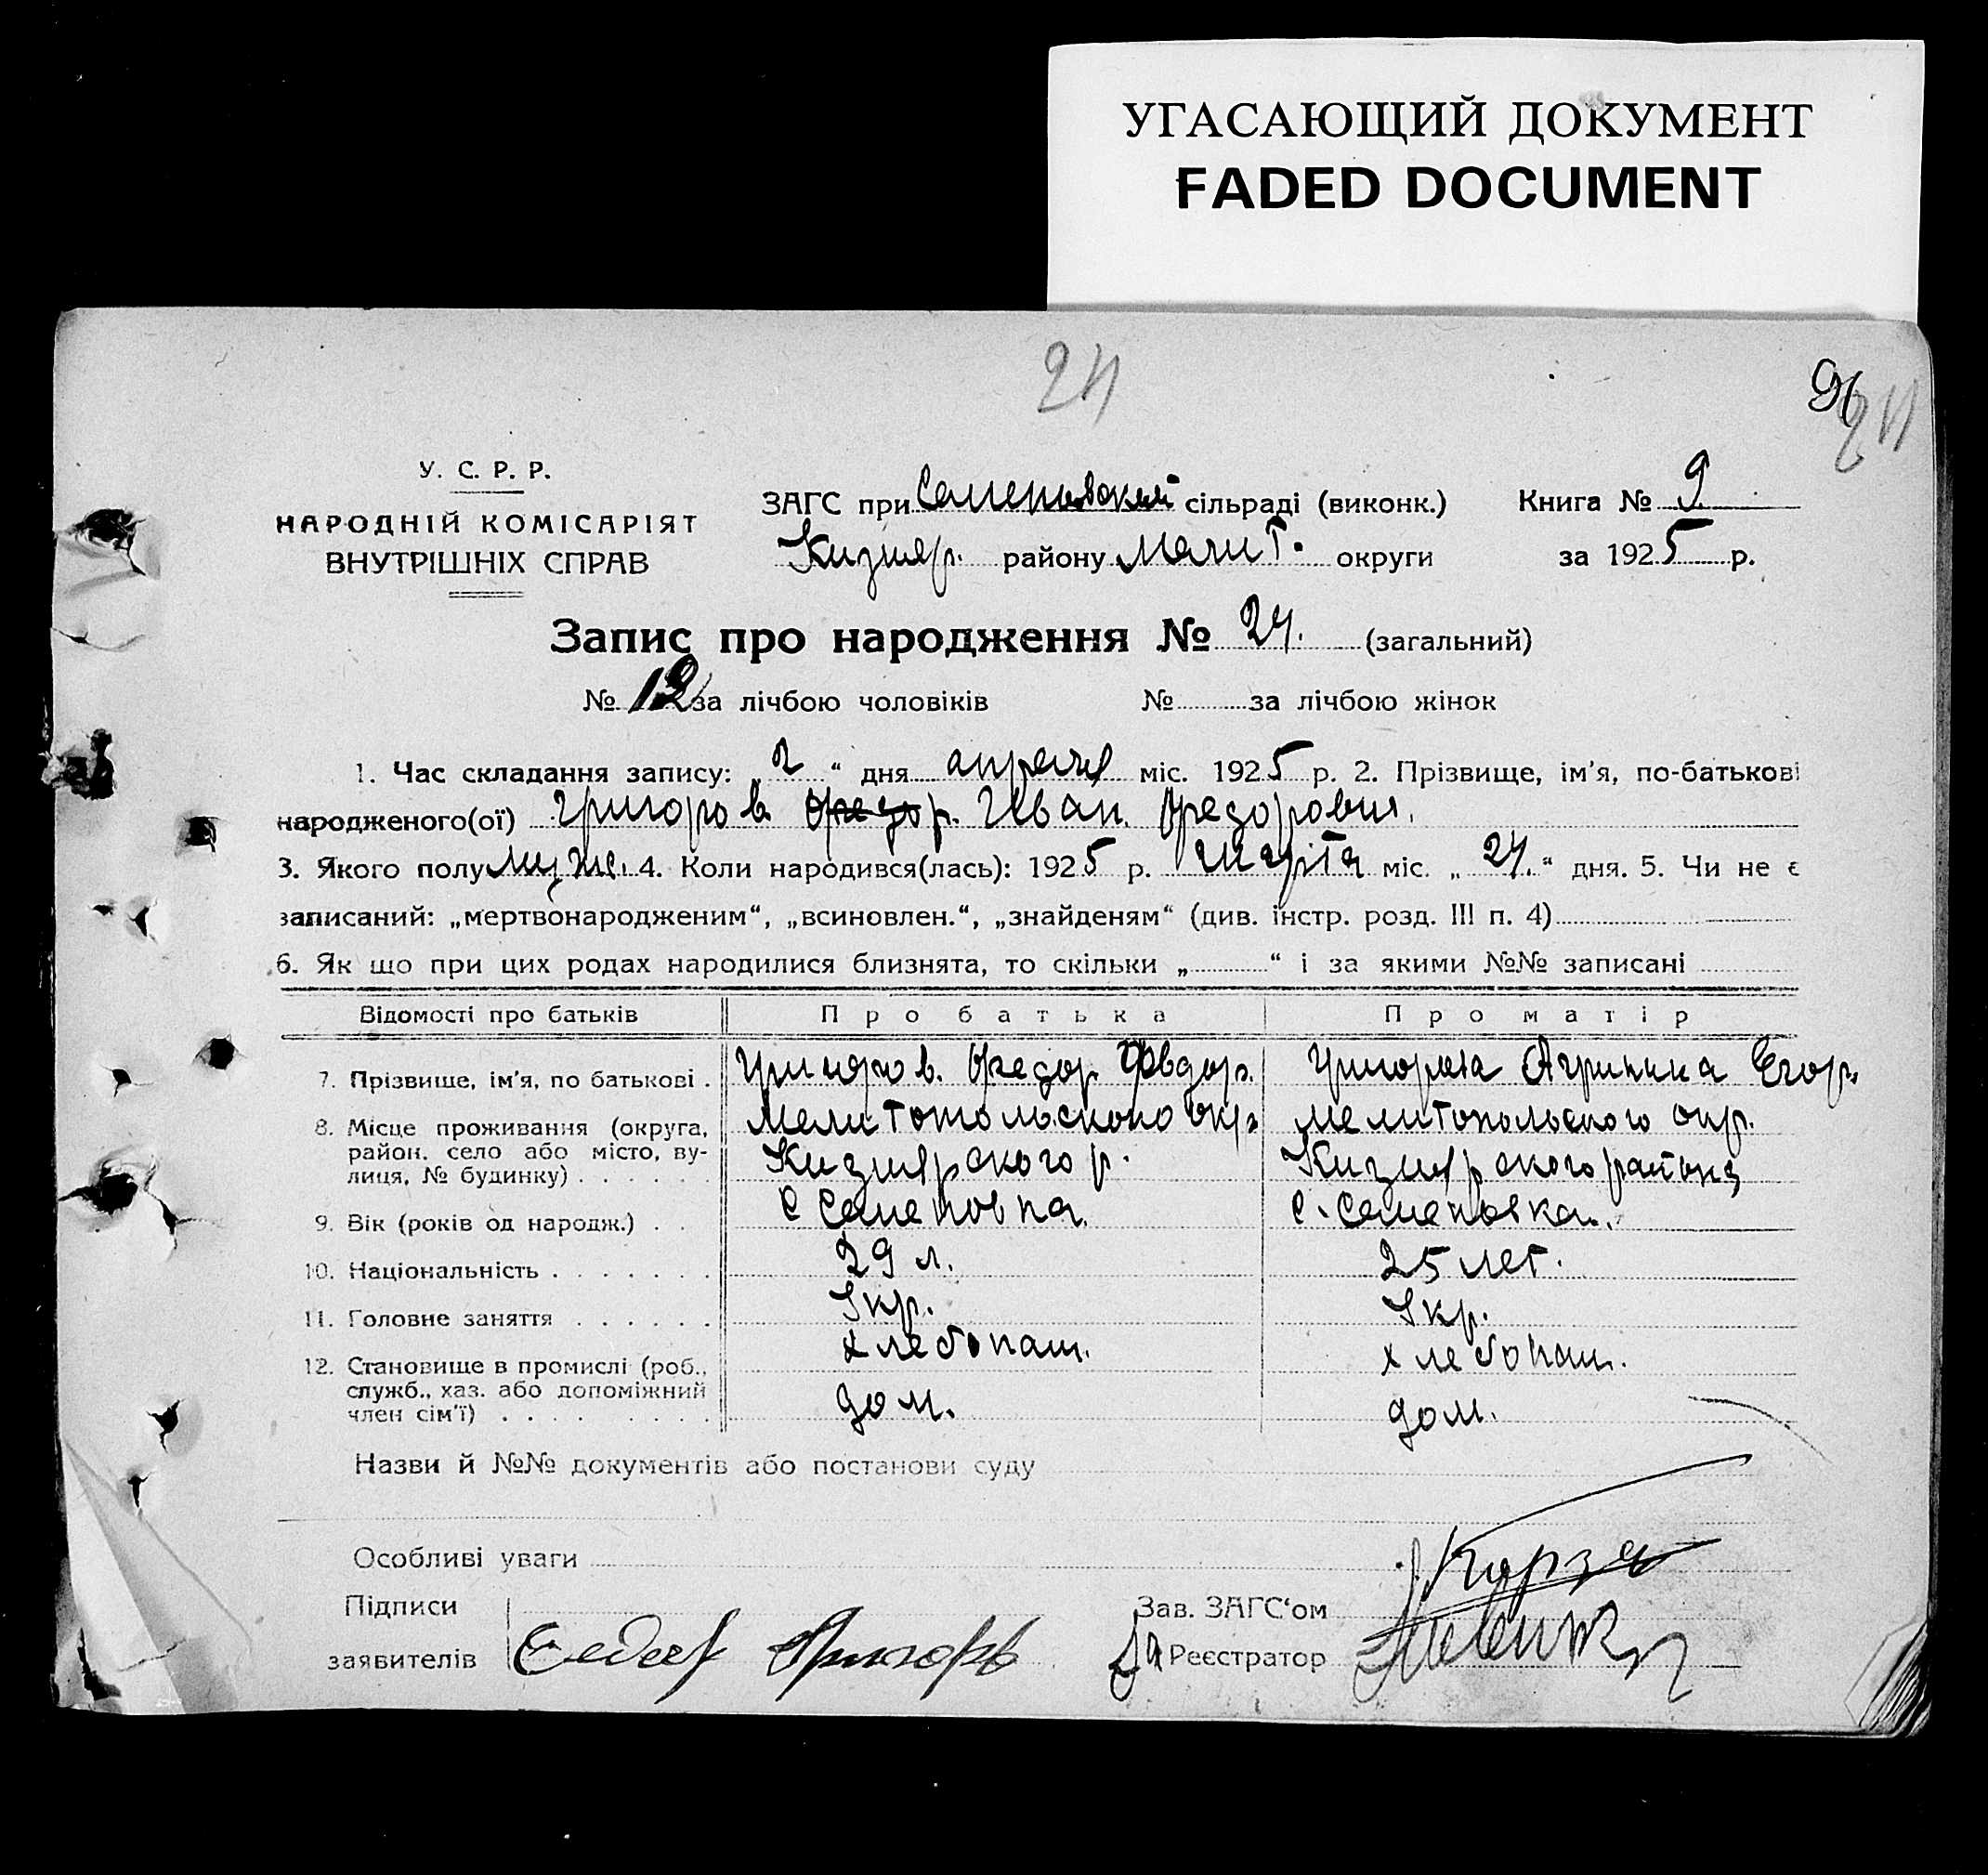 УГАСАЮЩИЙ ДОКУМЕНТ
FADED DOCUMENT
24
96
24
У. С. Р. Р.
НАРОДНІЙ КОМІСАРІЯТ
ВНУТРІШНІХ СПРАВ
ЗАГС при Семеновский сільраді (виконк.)
Книга № 9
Кизияр. району Мелит. округи
за 1925 р.
Запис про народження № 24. (загальний)
№ 12 за лічбою чоловіків № за лічбою жінок
1. Час складання запису: „2“ дня апреля міс. 1925 р. 2. Прізвище, ім'я, по-батькові
народженого(ої) Григоров Федор. Иван. Федорович.
3. Якого полу муже. 4. Коли народився(лась): 1925 р. марта міс. „24.“ дня. 5. Чи не є
записаний: „мертвонародженим“, „всиновлен.“, „знайденям“ (див. інстр. розд. III п. 4)
6. Як що при цих родах народилися близнята, то скільки „ “ і за якими №№ записані
Відомості про батьків Про батька Про матір
7. Прізвище, ім'я, по батькові . Григоров. Федор Федор. Григорова Агрипина Егор.
8. Місце проживання (округа, Мелитопольского окр. Мелитопольского окр.
район. село або місто, ву-
лиця, № будинку) . . . . . . Кизиярского р. Кизиярского района
9. Вік (років од народж.) . . с Семеновка. с. Семеновка.
10. Національність . . . . . . . 29 л. 25 лет.
11. Головне заняття . . . . . . Укр. Укр.
12. Становище в промислі (роб., хлебопаш. хлебопаш.
служб., хаз. або допоміжний
член сім'ї) . . . . . . . . . дом. дом.
Назви й №№ документів або постанови суду
Особливі уваги
Підписи
Зав. ЗАГС‘ом
заявителів
Григорв
За Реєстратор